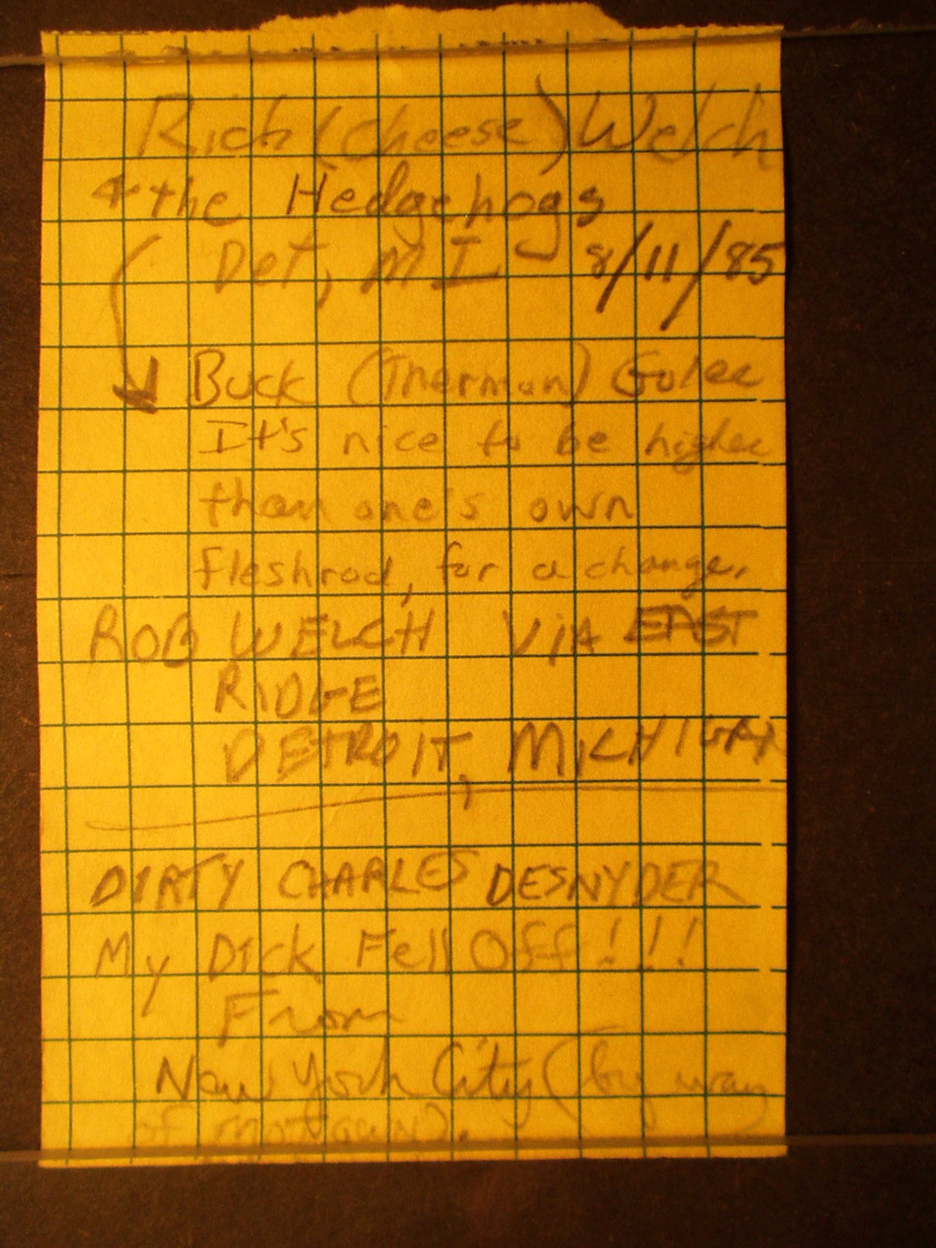 Rich (Cheese) Welch
& the Hedgehogs
Det, MI 8/11/85
Buck (Therman) Golec
It's nice to be higher
than one's own
fleshrod, for a change.
ROB WELCH VIA EAST
RIDGE
DETROIT, MICHIGAN
DIRTY CHARLES DESNYDER
My Dick Fell Off!!!
From
New York City (by way
of motown).